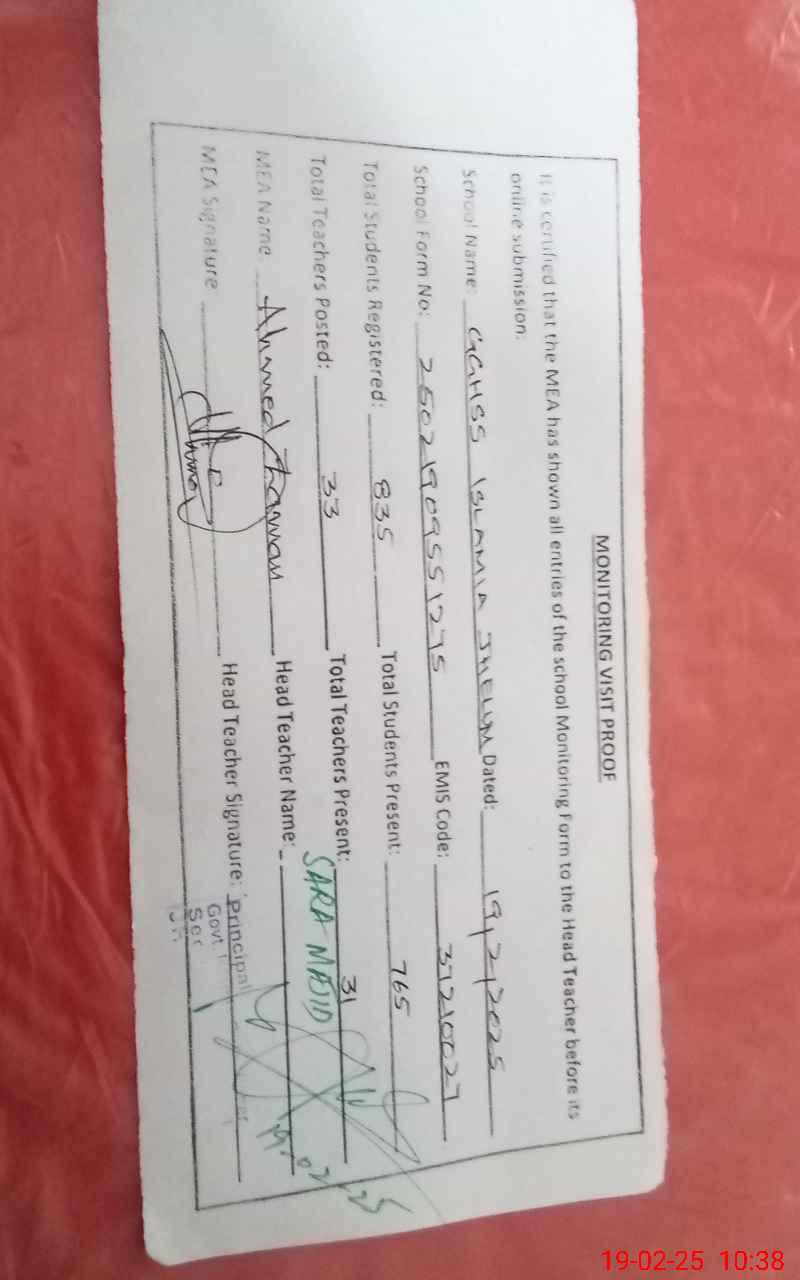 MONITORING VISIT PROOF
It is certified that the MEA has shown all entries of the school Monitoring Form to the Head Teacher before its
online submission:
School Name: GGHSS ISLAMIA JHELUM Dated: 19/2/2025
School Form No: 25021909551275 EMIS Code: 37210027
Total Students Registered: 835 Total Students Present: 765
Total Teachers Posted: 33 Total Teachers Present: 31
MEA Name Ahmed Head Teacher Name: SARA MAJID
MEA Signature Head Teacher Signature: Principal
Govt.
19-02-25 10:38